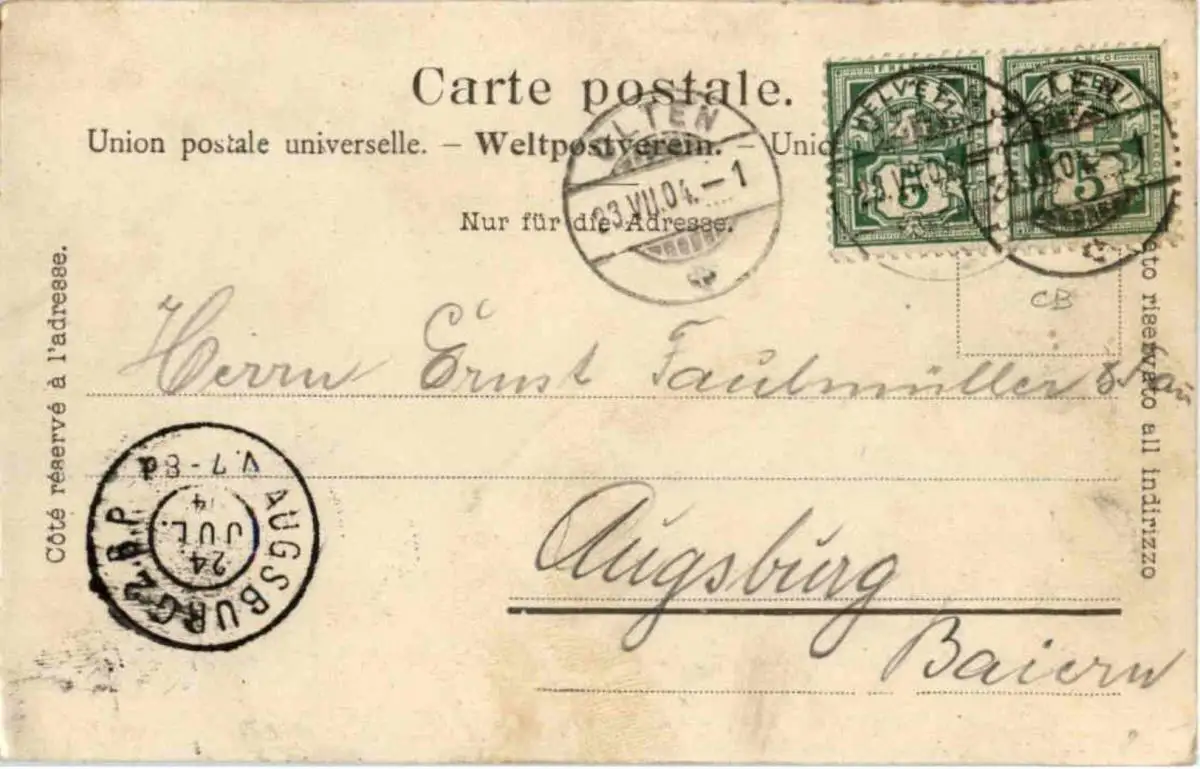 Carte postale.
Union postale universelle. – Weltpostverein. – Unio
Nur für die Adresse.
Côté réservé à l'adresse.
ato riservato all indirizzo
HELVETIA
5
HELVETIA
5
OLTEN
23.VII.04.–1
23.VII.04
23.VII.04.–1
CB
Herrn Ernst Faulmüller
Augsburg
Baiern
AUGSBURG 2.B.P.
24
JUL.
V.7-8